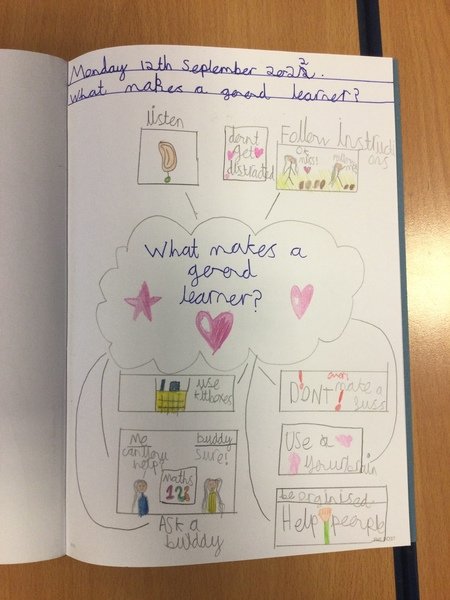 Monday 12th September 2022.
What makes a gorod learner?
listen
don't
get
distracted
Follow instructi
ons
OK
miss!
follow
me
What makes a
gerord
learner?
use
kitboxes
DONT
make a
fuss
me
can you
help?
buddy
sure!
maths
123
Ask a
buddy
Use a
your brain
be organised
Help peerple